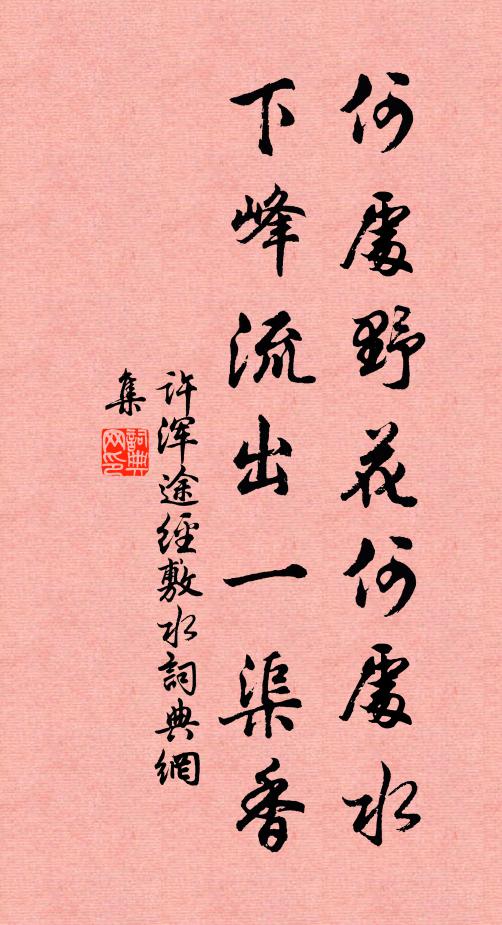 何處野花何處水
下峰流出一渠香
許渾途經敷水詞典網
集
詞典
网印